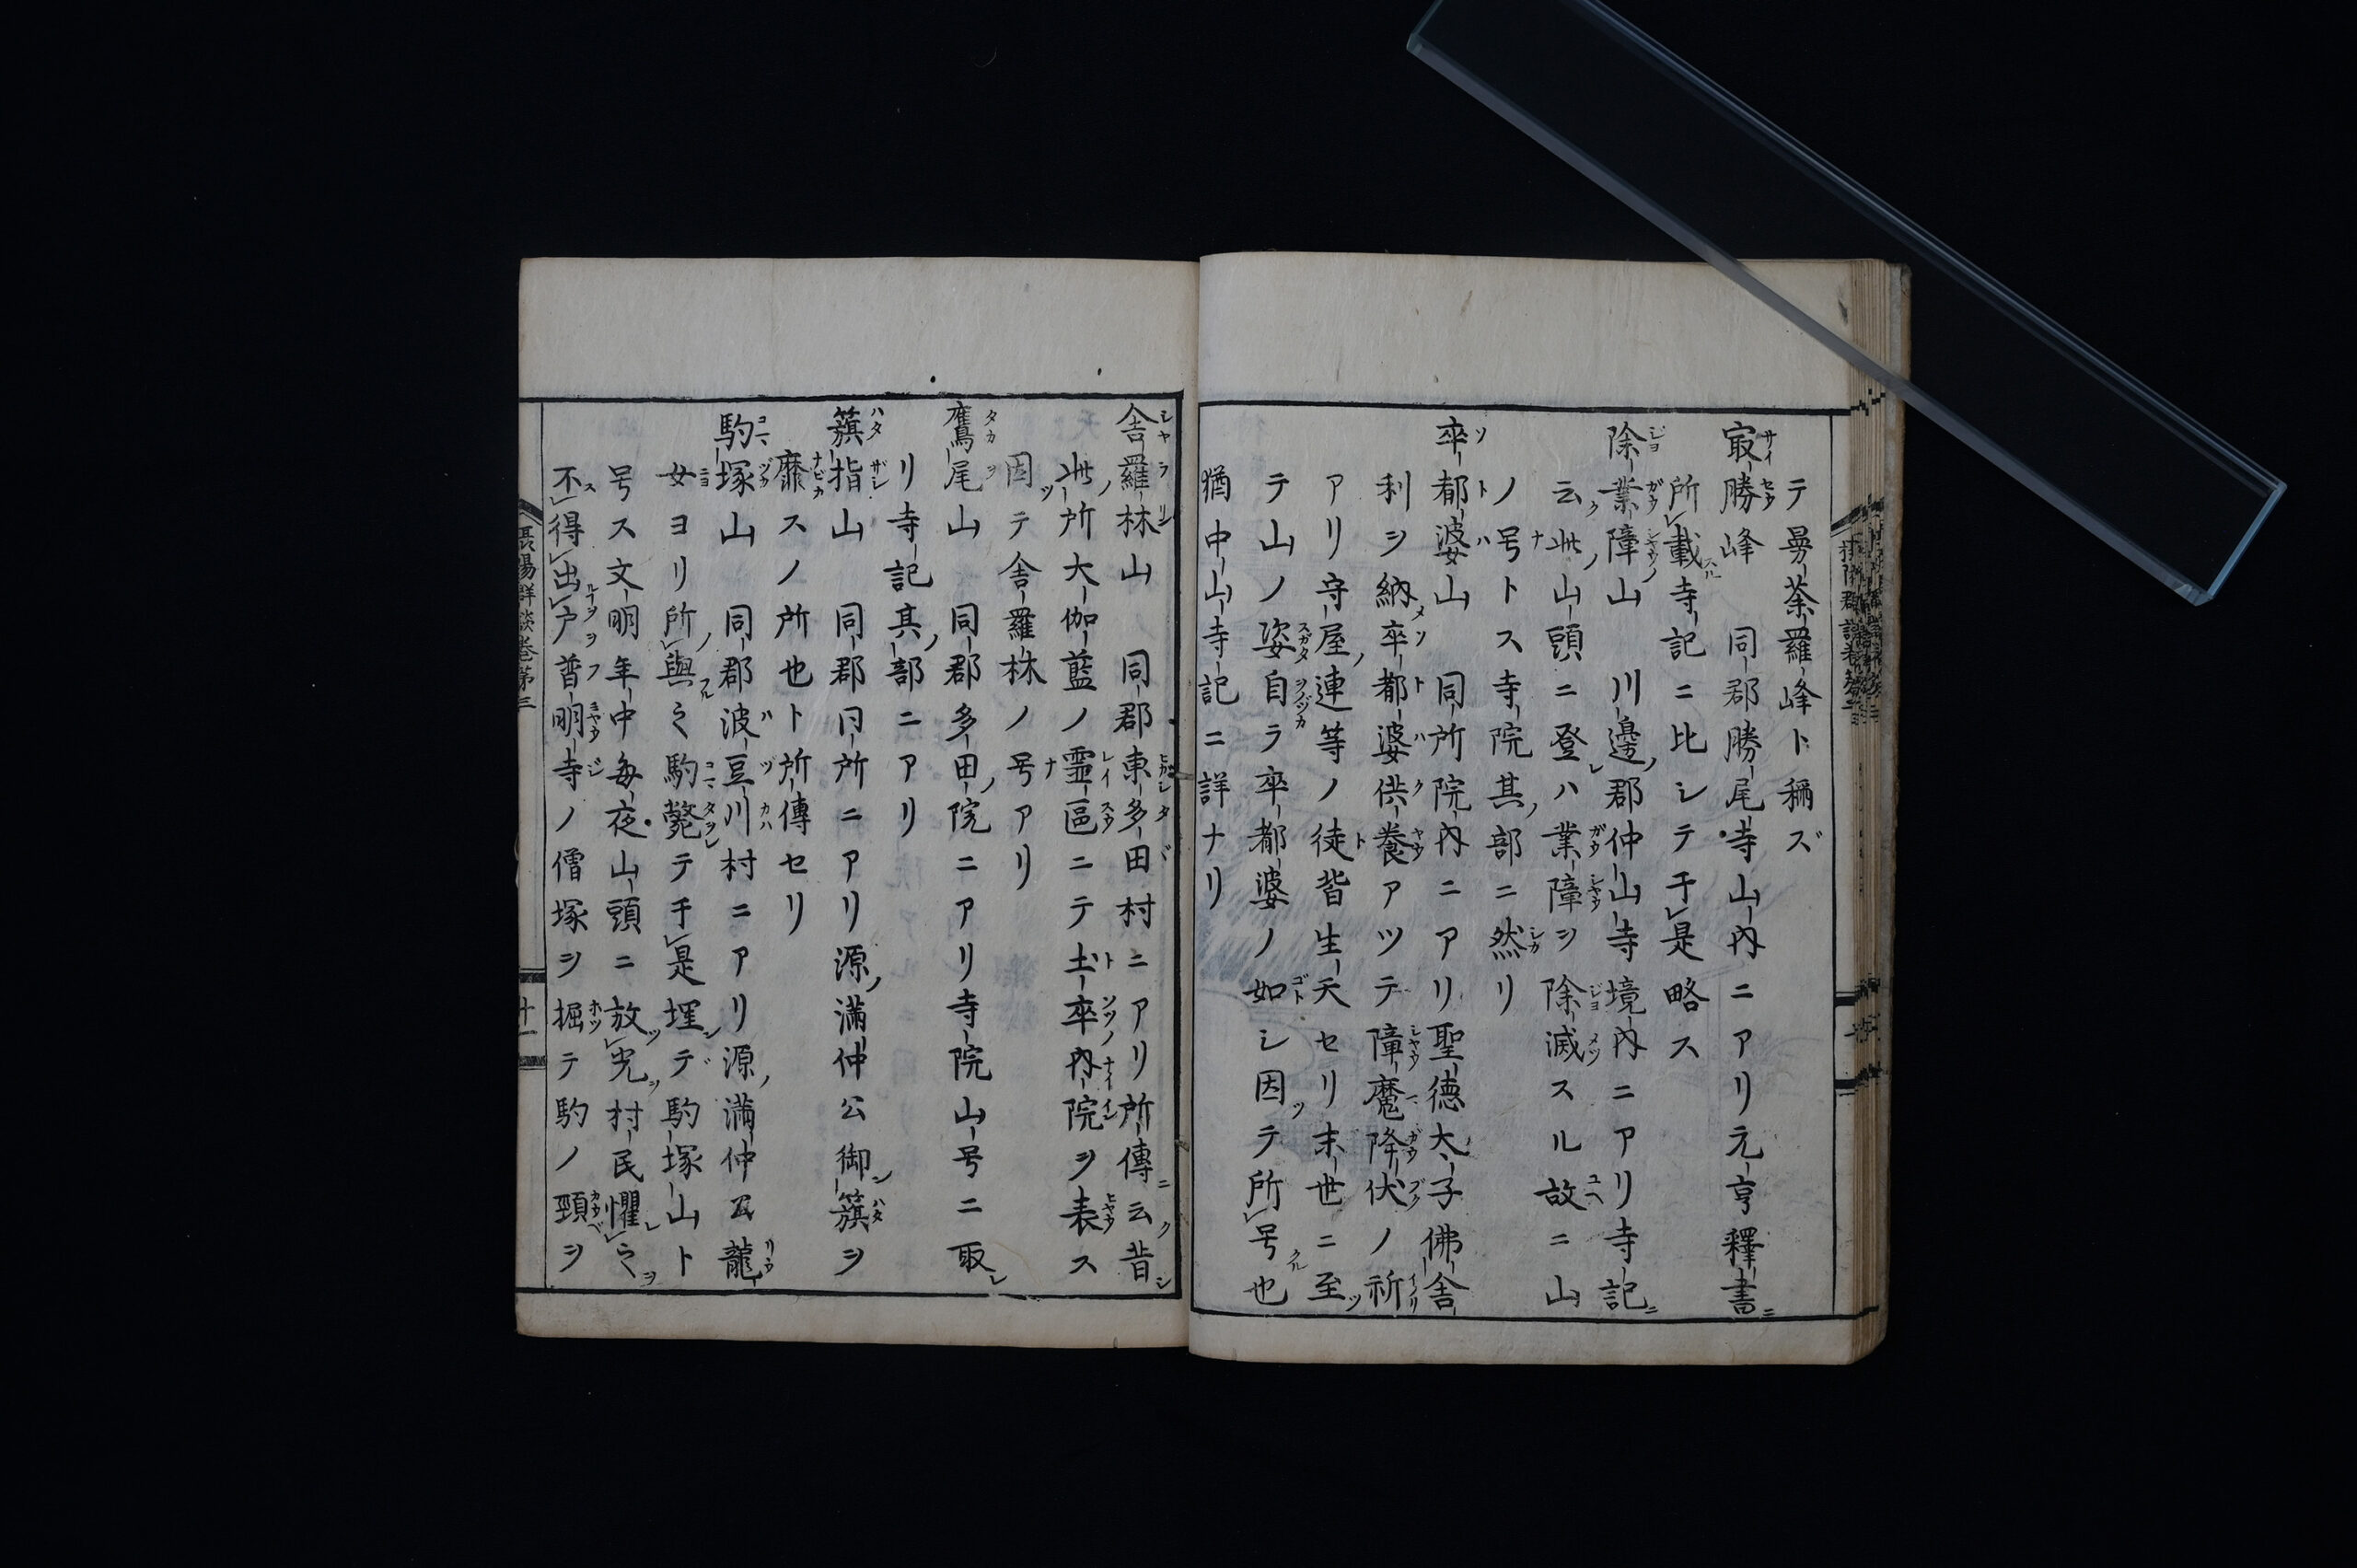 テ曼荼羅峰ト稱ズ
㝡勝峰　同郡勝尾寺山内ニアリ元亨釋書ニ
所載寺記ニ比シテ于是略ス
除業障山　川邊郡仲山寺境内ニアリ寺記ニ
云此山頭ニ登レハ業障ヲ除滅スル故ニ山
ノ号トス寺院其部ニ然リ
卒都婆山　同所院内ニアリ聖德太子佛舎
利ヲ納メ卒都婆供養アツテ障魔降伏ノ祈
アリ守屋連等ノ徒皆生天セリ末世ニ至ツ
テ山ノ姿自ラ卒都婆ノ如シ因ツテ所号也
猶中山寺記ニ詳ナリ
舎羅林山　同郡東多田村ニアリ所傳ニ云昔シ
此所大伽藍ノ靈區ニテ土卒内院ヲ表ス
因テ舎羅林ノ号アリ
鷹尾山　同郡多田院ニアリ寺院山号ニ取レ
リ寺記其部ニアリ
籏指山　同郡同所ニアリ源満仲公御籏ヲ
靡スノ所也ト所傳セリ
駒塚山　同郡波豆川村ニアリ源満仲公龍
女ヨリ所與之駒斃テ于是埋デ駒塚山ト
号ス文明年中毎夜山頭ニ放光村民懼之
不得出戸普明寺ノ僧塚ヲ掘テ駒ノ頸ヲ
摂陽群談巻第三
十一